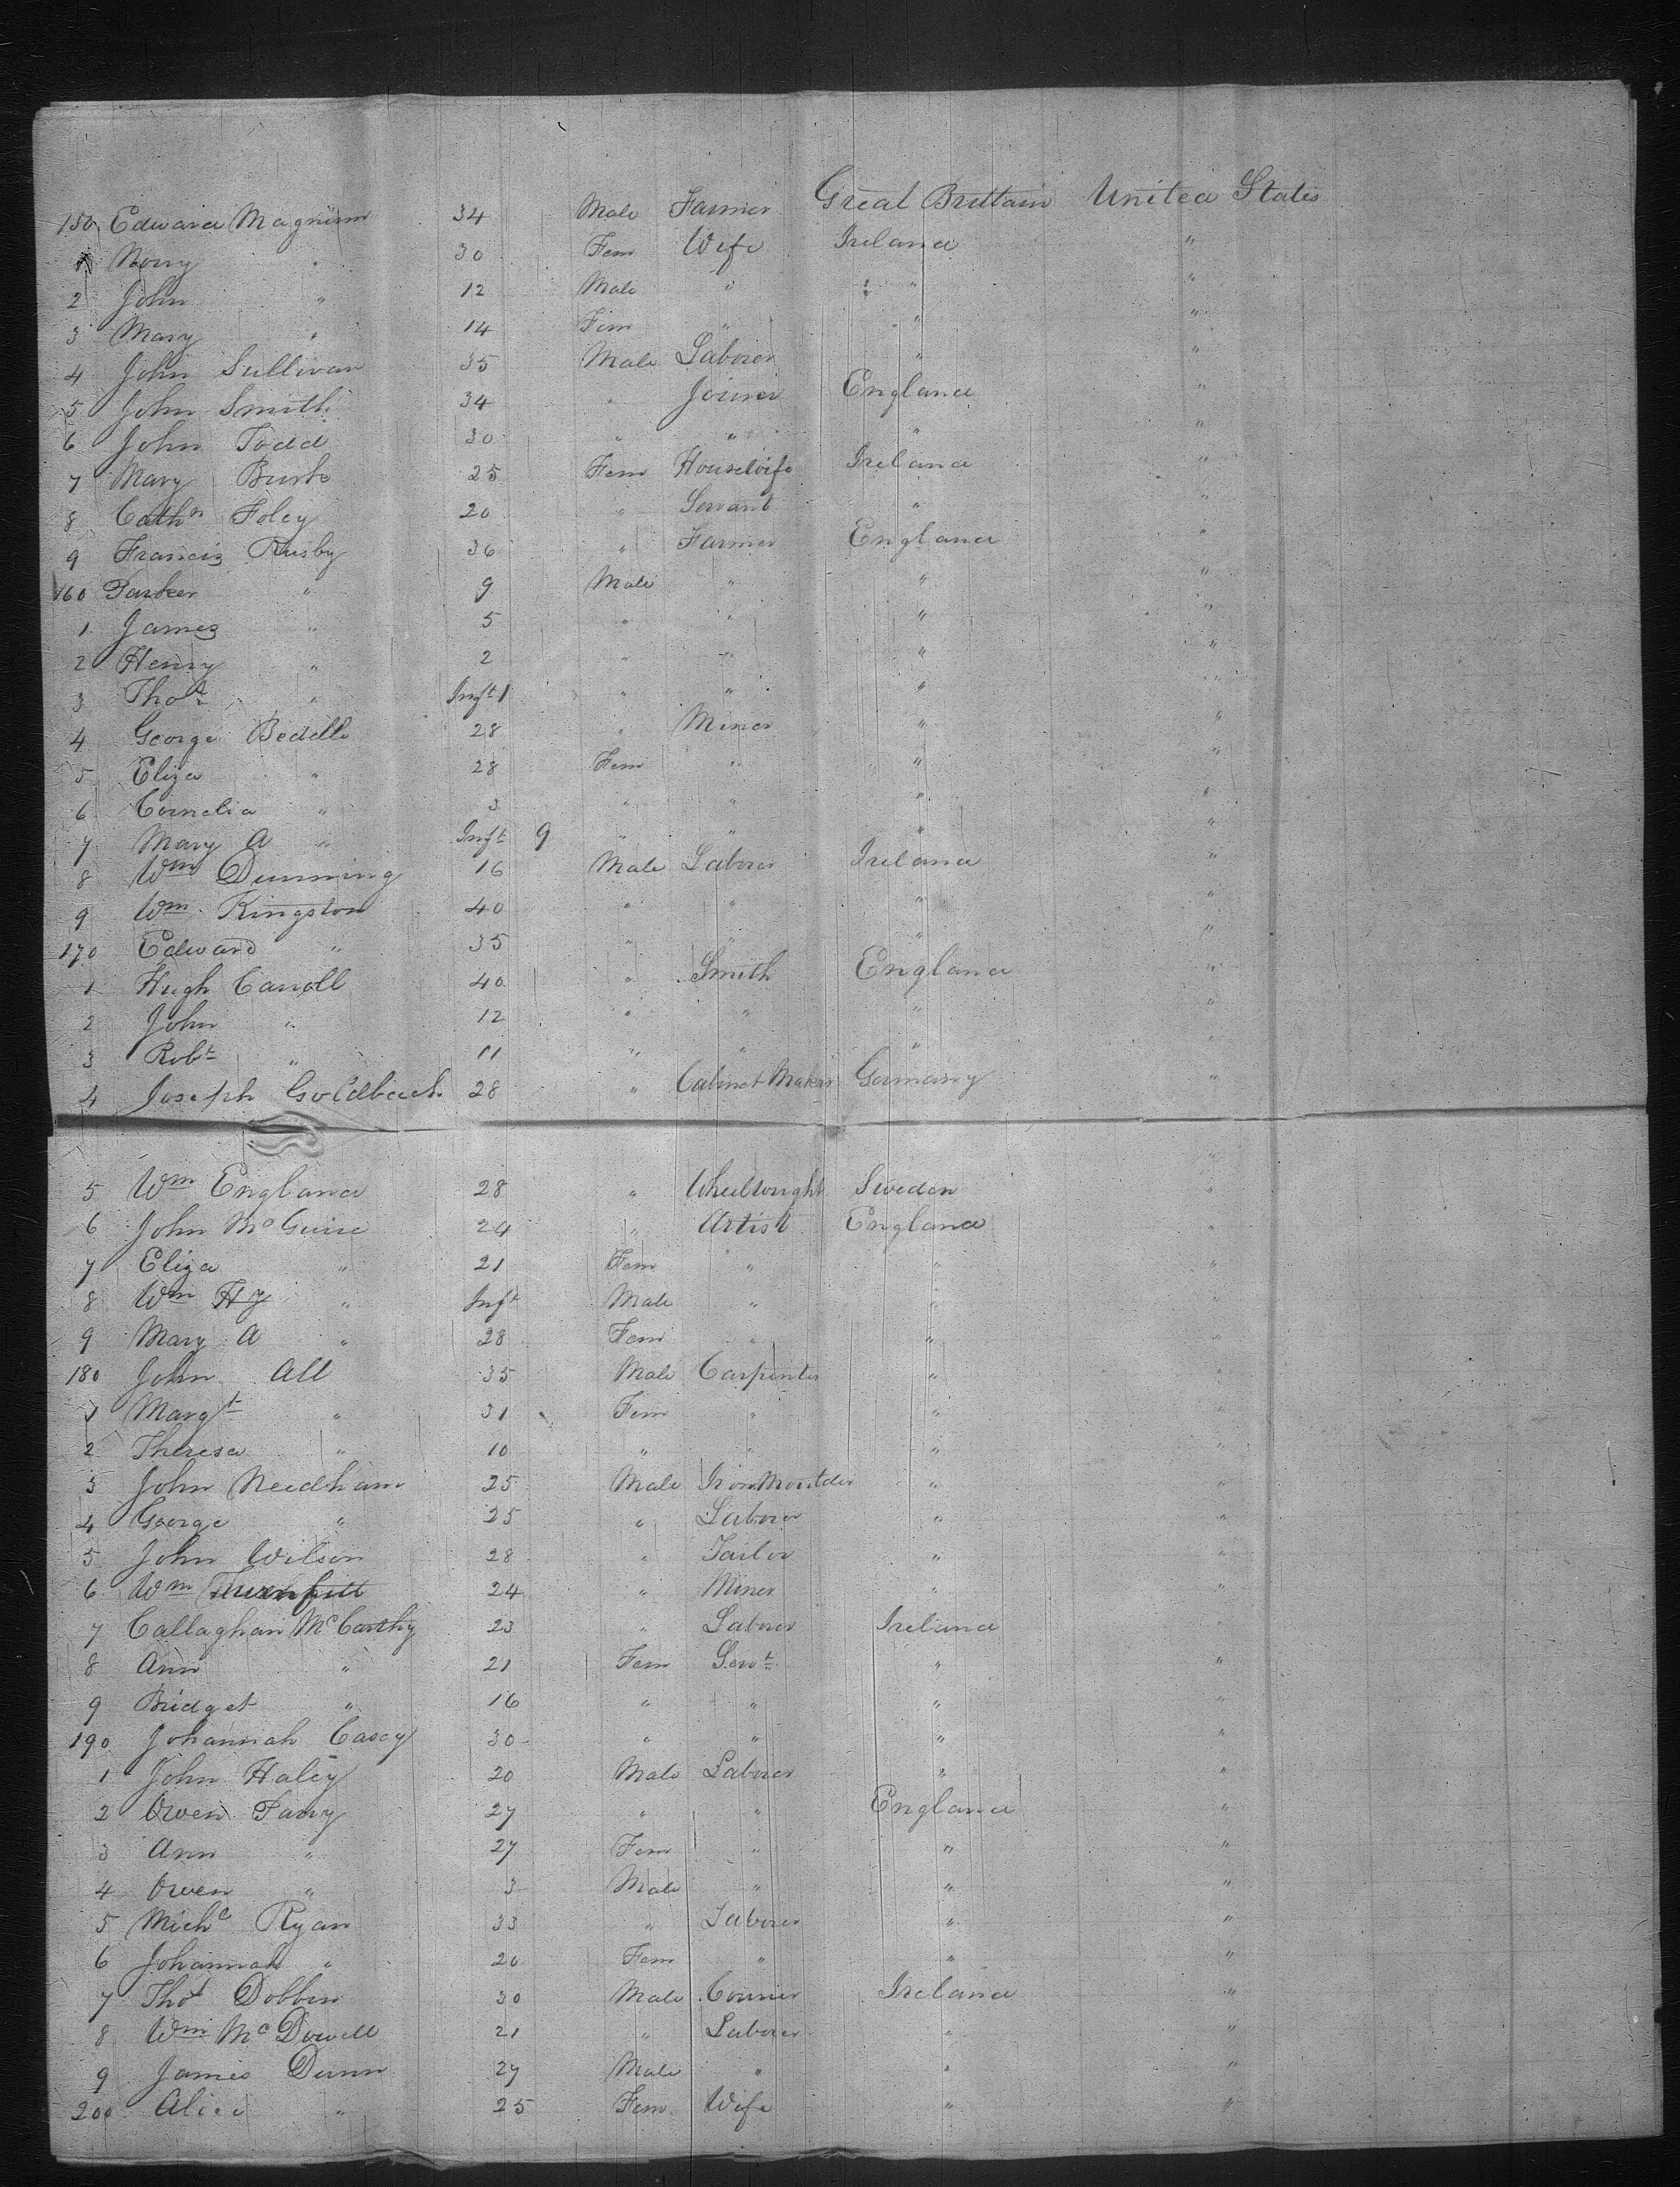 150 Edward Magnirm 34 Male Farmer Great Brittain United States
1 Norry " 30 Fem Wife Ireland "
2 John " 12 Male " " "
3 Mary " 14 Fem " " "
4 John Sullivan 35 Male Laborer " "
5 John Smith 34 " Joiner England "
6 John Todd 30 " " " "
7 Mary Burke 25 Fem Housewife Ireland "
8 Cathn Foley 20 " Servant " "
9 Francis Rusby 36 " Farmer England "
160 Parker " 9 Male " " "
1 James " 5 " " " "
2 Henry " 2 " " " "
3 Thos " Inft 1 " " " "
4 George Bedelle 28 " Miner " "
5 Eliza " 28 Fem " " "
6 Cornelia " 3 " " " "
7 Mary A " Inft 9 " " " "
8 Wm Dunning 16 Male Laborer Ireland "
9 Wm Kingston 40 " " " "
170 Edward " 35 " " " "
1 Hugh Carroll 40 " Smith England "
2 John " 12 " " " "
3 Robt " 11 " " " "
4 Joseph Goldbach 28 " Cabinet Maker Germany "
5 Wm England 28 " Wheelwright Sweden "
6 John McGuire 24 " Artist England "
7 Eliza " 21 Fem " " "
8 Wm Hy " Inft Male " " "
9 Mary A " 28 Fem " " "
180 John All 35 Male Carpenter " "
1 Margt " 31 Fem " " "
2 Theresa " 10 " " " "
3 John Needham 25 Male Iron Moulder " "
4 George " 25 " Laborer " "
5 John Wilson 28 " Tailor " "
6 Wm 24 " Miner " "
7 Callaghan McCarthy 23 " Laborer Ireland "
8 Ann " 21 Fem Servt " "
9 Bridget " 16 " " " "
190 Johannah Casey 30 " " " "
1 John Haley 20 Male Laborer " "
2 Owen Parry 27 " " England "
3 Ann " 27 Fem " " "
4 Owen " 3 Male " " "
5 Michl Ryan 33 " Laborer " "
6 Johannah " 20 Fem " " "
7 Thos Dobbin 30 Male Currier Ireland "
8 Wm McDowell 21 " Laborer " "
9 James Dunn 27 Male " " "
200 Alice " 25 Fem Wife " "